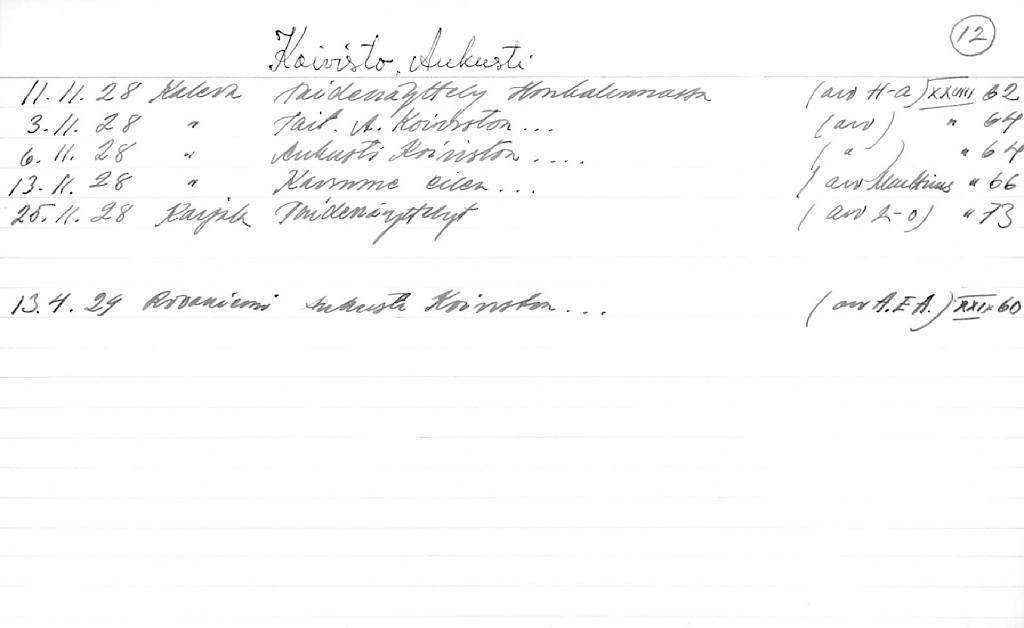 12
Koivisto, Aukusti
11.11.28 Kaleva Taidenäyttely Honkalinnassa (arv H-a) XXVIII 62
3.11.28 " Tait. A. Koiviston... (arv) " 64
6.11.28 " Aukusti Koiviston.... ( " ) " 64
13.11.28 " Kävimme eilen... (arv " 66
25.11.28 Karjala Taidenäyttelyt (arv L-o) " 73
13.4.29 Rovaniemi Aukusti Koiviston... (arv A.E.A.) XXIX 60